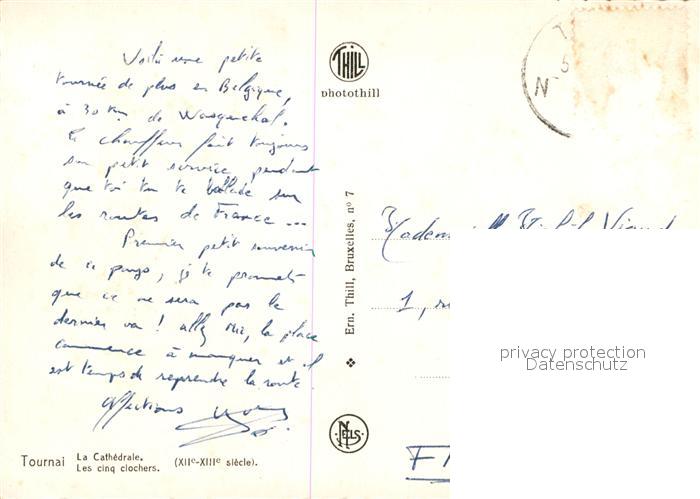 Voilà une petite
tournée de plus en Belgique,
à 30 km de Wasquehal.
Le chauffeur fait toujours
son petit service pendant
que toi tu te ballade sur
les routes de France ...
Premier petit souvenir
de ce pays, je te promets
que ce ne sera pas le
dernier va ! Allez oui, la place
commence à manquer et il
est temps de reprendre la route.
Affections
Tournai La Cathédrale.
Les cinq clochers. (XIIe-XIIIe siècle).
THILL
photothill
Ern. Thill, Bruxelles, n° 7
NELS
N
5
1,
privacy protection
Datenschutz